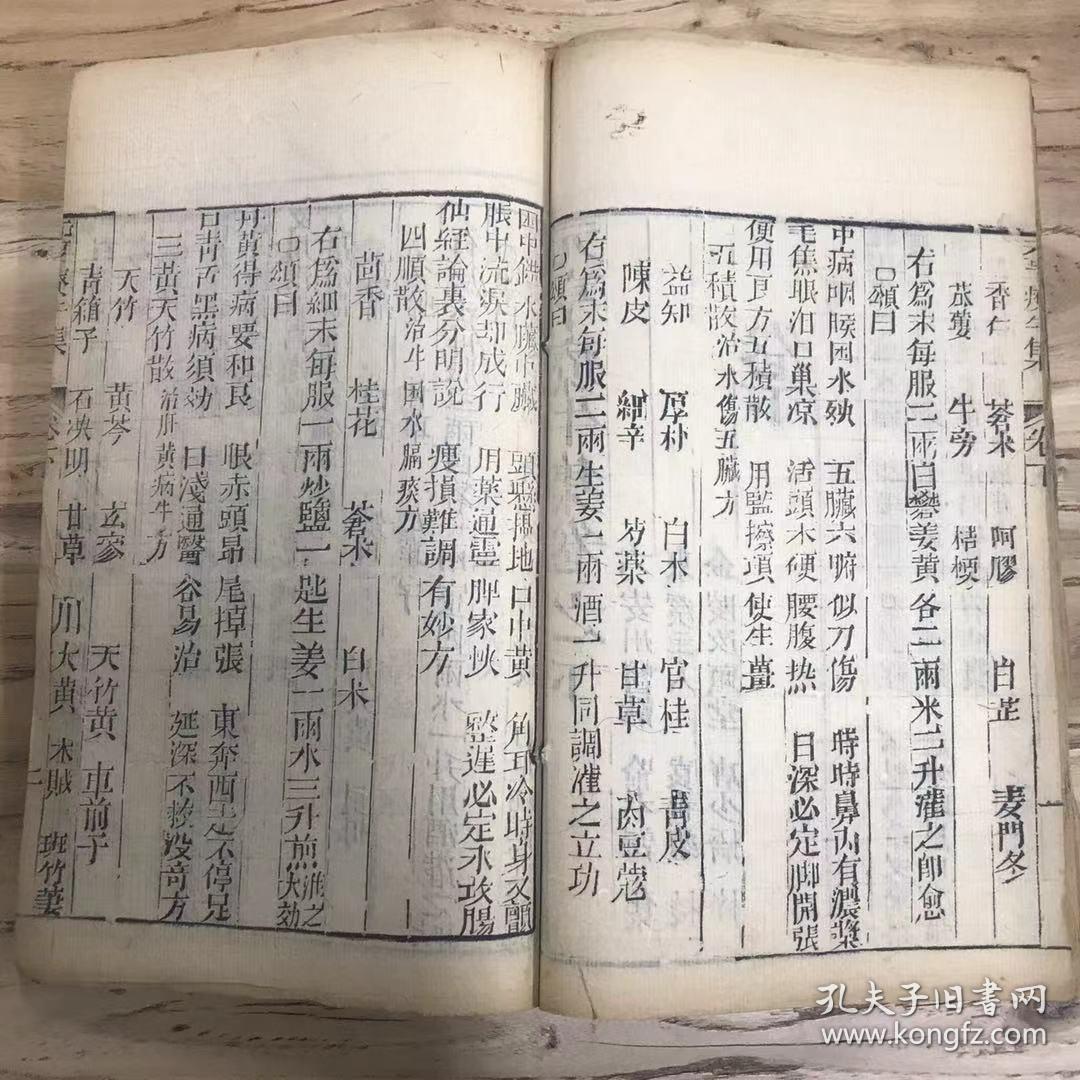 香 蒼术 阿膠 白芷 麦門冬
牛旁 桔梗
右爲末每服二兩白礬姜黄各二兩米二升灌之即愈
頌曰
中病咽喉因水殃 五臟六腑似刀傷 時時鼻内有濃漿
毛焦眼汨口巢凉 活頭木硬腰腹热 日深必定脚開張
便用良方五積散 用監擦項使生薑
五積散治水傷五臟方
益知 厚朴 白术 官桂 青皮
陳皮 細辛 芍薬 甘草 肉豆蔻
右爲末每服二兩生姜一兩酒一升同調灌之立功
頌曰
水臟 頭懸搨地口中黄 角耳冷時身又顫
脹中流淚却成行 用薬通靈脾家快 整遲必定水攻腸
仙經論裏分明說 瘦損難調有妙方
四順散治牛困水膈痰方
茴香 桂花 蒼术 白术
右爲細末每服一兩炒鹽一匙生姜一兩水三升煎灌之大効
頌曰
丹黄得病要和良 眼赤頭昂尾掉張 東奔西走不停足
舌青舌黑病須効 日淺通醫容易治 延深不救没奇方
三黄天竹散治肝黄病牛方
天竹 黄芩 玄參 天竹黄 車前子
青箱子 石决明 甘草 川大黄 木賊 斑竹姜
卷下
孔夫子旧書网
www.kongfz.com